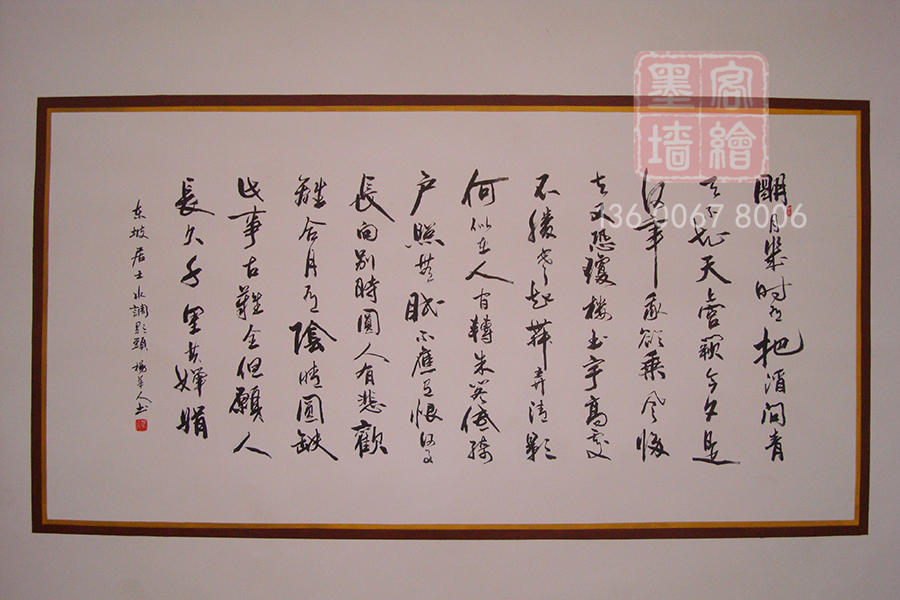 墨客
墙繪
136 0067 8006
明月幾时有把酒问青
天不知天上宫阙今夕是
何年我欲乘风归
去又恐瓊楼玉宇高处
不勝寒起舞弄清影
何似在人间轉朱阁低绮
户照無眠不應有恨何事
長向别時圓人有悲歡
離合月有陰晴圓缺
此事古難全但願人
長久千里共嬋娟
东坡居士水調歌頭 人书